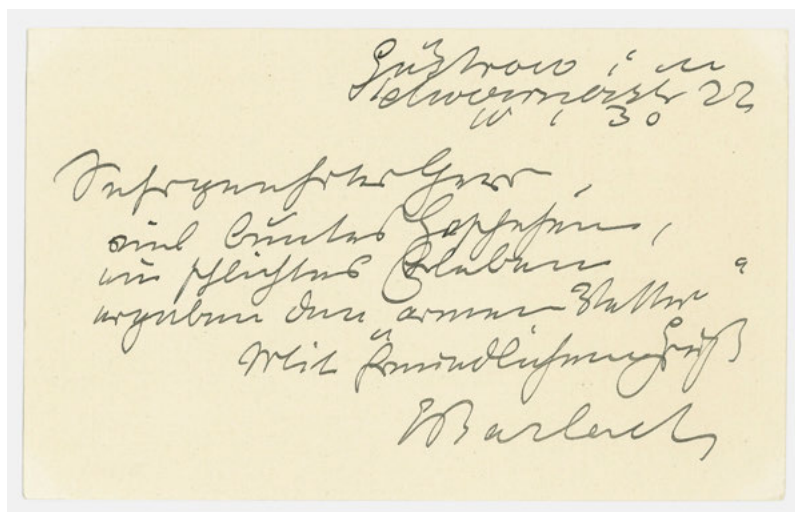 Güstrow i M
Schwaanerstr 22
10 1 30
Sehrgeehrter Herr,
viel buntes Geschehen,
ein schlichtes Erleben
ergaben den „armen Vetter“
Mit freundlichem Gruß
EBarlach